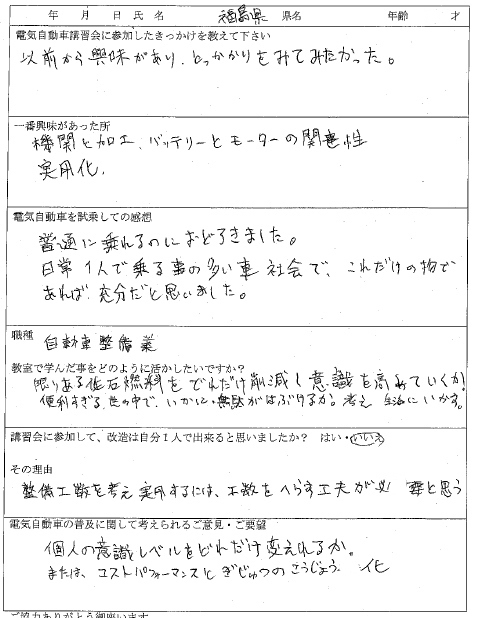 年 月 日 氏 名 福島県 県名 年齢 才
電気自動車講習会に参加したきっかけを教えて下さい
以前から興味があり、とっかかりをみてみたかった。
一番興味があった所
機関と加工、バッテリーとモーターの関連性
実用化、
電気自動車を試乗しての感想
普通に乗れるのにおどろきました。
日常1人で乗る事の多い車社会で、これだけの物で
あれば、充分だと思いました。
職種 自動車整備業
教室で学んだ事をどのように活かしたいですか？
限りある化石燃料をどれだけ削減し意識を高めていくか!
便利すぎる世の中で、いかに無駄がはぶけるか。考え 生活にいかす。
講習会に参加して、改造は自分1人で出来ると思いましたか？ はい・いいえ
その理由
整備工数を考え実用するには、工数をへらす工夫が必要と思う
電気自動車の普及に関して考えられるご意見・ご要望
個人の意識レベルをどれだけ変えれるか。
または、コストパフォーマンスとぎじゅつのこうじょう 化
ご協力ありがとう御座います